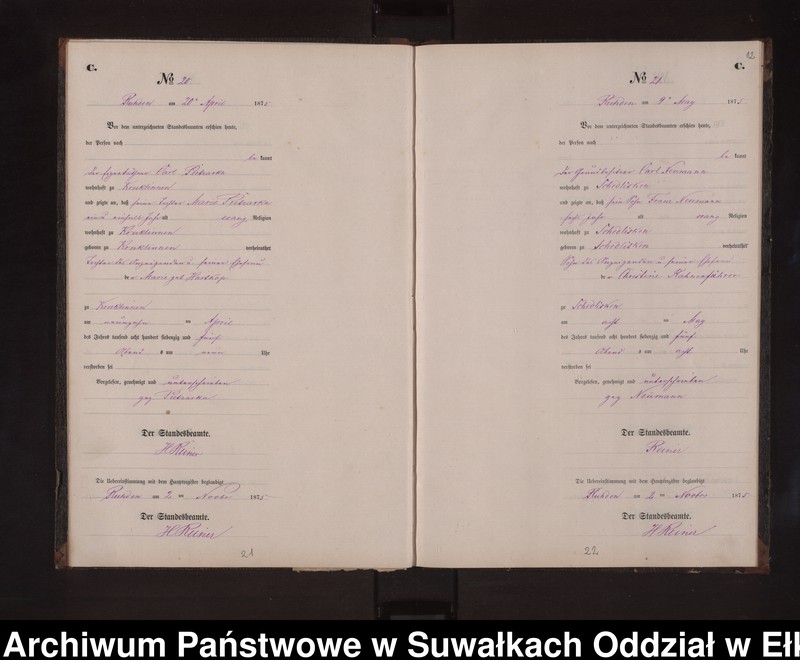 C.
No 20.
am 20 n April 1875
Vor dem unterzeichneten Standesbeamten erschien heute,
der Person nach
be kannt
der Eigenkäthner Carl
wohnhaft zu Konklennen
und zeigte an, daß seine Tochter Marie
alt evang Religion
wohnhaft zu Konklennen
geboren zu Konklennen verheirathet
Tochter des Anzeigenden u seiner Ehefrau
de r Marie geb
zu Konklennen
am neunzehn ten April
des Jahres tausend acht hundert siebenzig und fünf
Abend s um neun Uhr
verstorben sei
Vorgelesen, genehmigt und unterschrieben
gez
Der Standesbeamte.
H Reiner
Die Uebereinstimmung mit dem Hauptregister beglaubigt
am 2 ten Novbr 1875
Der Standesbeamte.
H Reiner
21
12
C.
No 21.
am 9 n May 1875
Vor dem unterzeichneten Standesbeamten erschien heute,
der Person nach
be kannt
der Grundbesitzer Carl Neumann
wohnhaft zu Schedlisken
und zeigte an, daß sein Sohn Franz Neumann
sechs Jahr alt evang Religion
wohnhaft zu Schedlisken
geboren zu Schedlisken verheirathet
Sohn des Anzeigenden u seiner Ehefrau
de r Christine
zu Schedlisken
am acht ten May
des Jahres tausend acht hundert siebenzig und fünf
Abend s um acht Uhr
verstorben sei
Vorgelesen, genehmigt und unterschrieben
gez Neumann
Der Standesbeamte.
Reiner
Die Uebereinstimmung mit dem Hauptregister beglaubigt
am 2 ten Novbr 1875
Der Standesbeamte.
H Reiner
22
Archiwum Państwowe w Suwałkach Oddział w Ełk